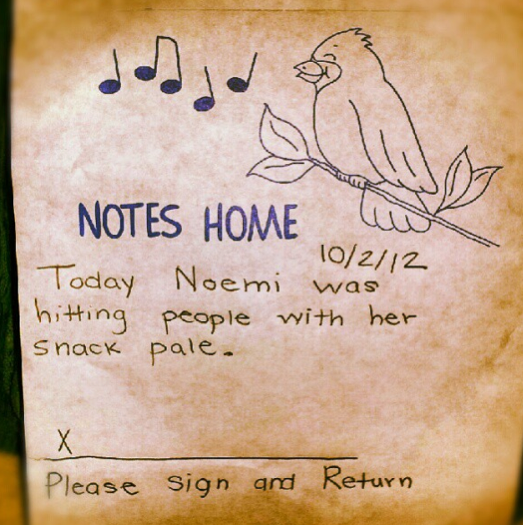 NOTES HOME
10/2/12
Today Noemi was
hitting people with her
snack pale.
X
Please sign and Return